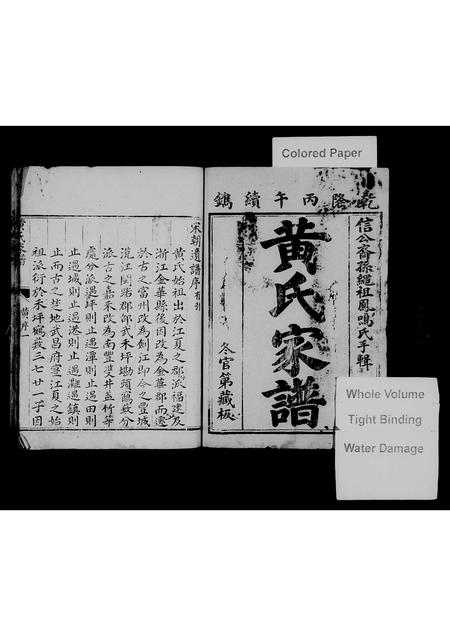 Colored Paper
乾隆丙午續鐫
信公裔孫繩祖鳳鳴氏手輯
黃氏家譜
冬官第藏板
Whole Volume
Tight Binding
Water Damage
宋朝遺譜序有引
黃氏始祖出於江夏之郡派福建及
浙江金華縣後因改為金華郡而遷
於古之富州改為劍江即今之豐城
派古之嘉禾改為南豐雙井並竹篳
處分派遇坪則止遇潭則止遇田則
止遇城則止遇港則止遇灘遇鎮則
止而古之楚地武昌府寔江夏之始
祖派衍於禾坪鷂薮三七廿一子因
黃序一